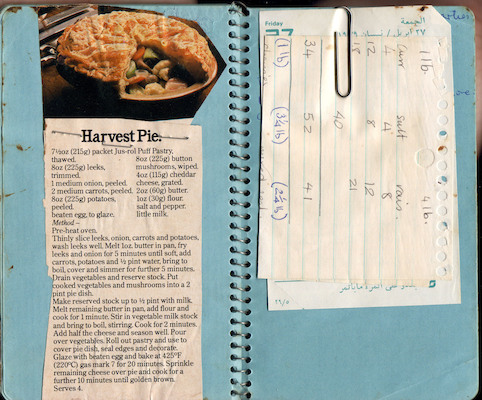 Harvest Pie.
7½oz (215g) packet Jus-rol Puff Pastry,
thawed.
8oz (225g) leeks,
trimmed.
1 medium onion, peeled.
2 medium carrots, peeled.
8oz (225g) potatoes,
peeled.
beaten egg, to glaze.
8oz (225g) button
mushrooms, wiped.
4oz (115g) cheddar
cheese, grated.
2oz (60g) butter.
1oz (30g) flour.
salt and pepper.
little milk.
Method –
Pre-heat oven.
Thinly slice leeks, onion, carrots and potatoes,
wash leeks well. Melt 1oz. butter in pan, fry
leeks and onion for 5 minutes until soft, add
carrots, potatoes and ½ pint water, bring to
boil, cover and simmer for further 5 minutes.
Drain vegetables and reserve stock. Put
cooked vegetables and mushrooms into a 2
pint pie dish.
Make reserved stock up to ½ pint with milk.
Melt remaining butter in pan, add flour and
cook for 1 minute. Stir in vegetable milk stock
and bring to boil, stirring. Cook for 2 minutes.
Add half the cheese and season well. Pour
over vegetables. Roll out pastry and use to
cover pie dish, seal edges and decorate.
Glaze with beaten egg and bake at 425°F
(220°C) gas mark 7 for 20 minutes. Sprinkle
remaining cheese over pie and cook for a
further 10 minutes until golden brown.
Serves 4.
Friday
27
الجمعة
1 lb. 4 lb.
curr sult rais.
4 4 8
12 8 12
18 40 21
34 52 41
(1 lb) (3¼ lb) (2½ lb)